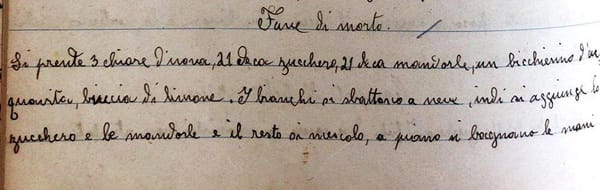 Fave di morto.
Si prente 3 chiare d'uova, 21 deca zucchero, 21 deca mandorle, un bicchierino d'ac
quavita, buccia di limone. I bianchi si sbattono a neve, indi si aggiungi lo
zucchero e le mandorle e il resto si mescola, a piano si bagnano le mani